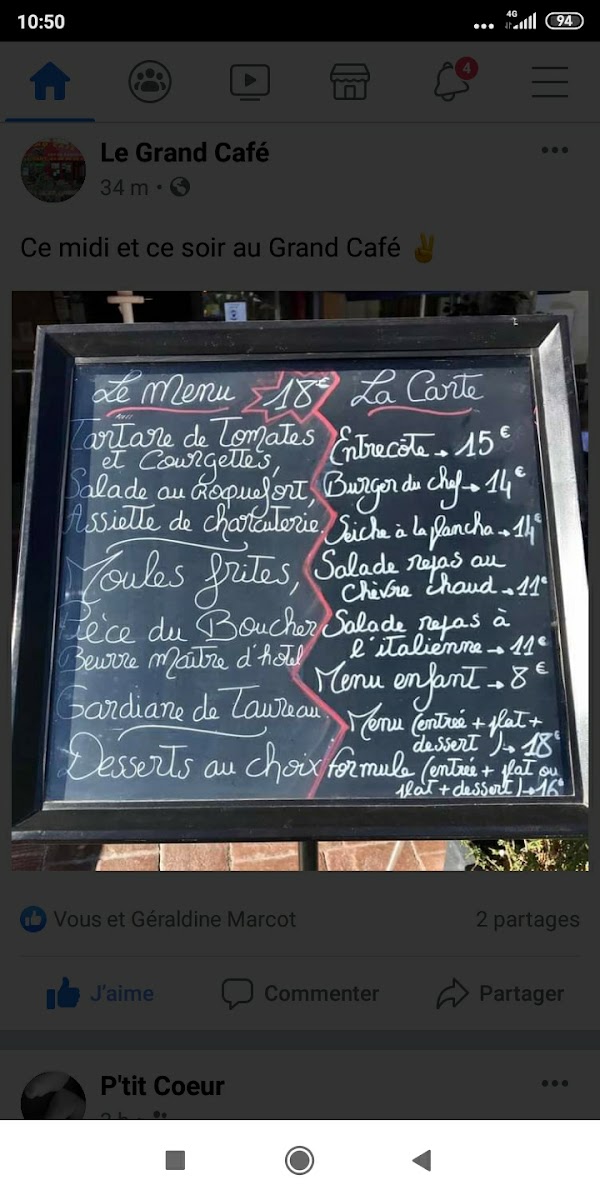 10:50
4G
94
4
Le Grand Café
34 m
Ce midi et ce soir au Grand Café
Le Menu 18€
Tartare de Tomates
et Courgettes,
Salade au Roquefort,
Assiette de charcuterie
Moules frites,
Pièce du Boucher
Beurre maître d'hôtel
Gardiane de Taureau.
Desserts au choix
La Carte
Entrecôte → 15€
Burger du chef → 14€
Seiche à la plancha → 14€
Salade repas au
Chèvre chaud → 11€
Salade repas à
l'italienne → 11€
Menu enfant → 8€
Menu (entrée + plat +
dessert) → 18€
formule (entrée + plat ou
plat + dessert) → 16€
Vous et Géraldine Marcot
2 partages
J'aime
Commenter
Partager
P'tit Coeur